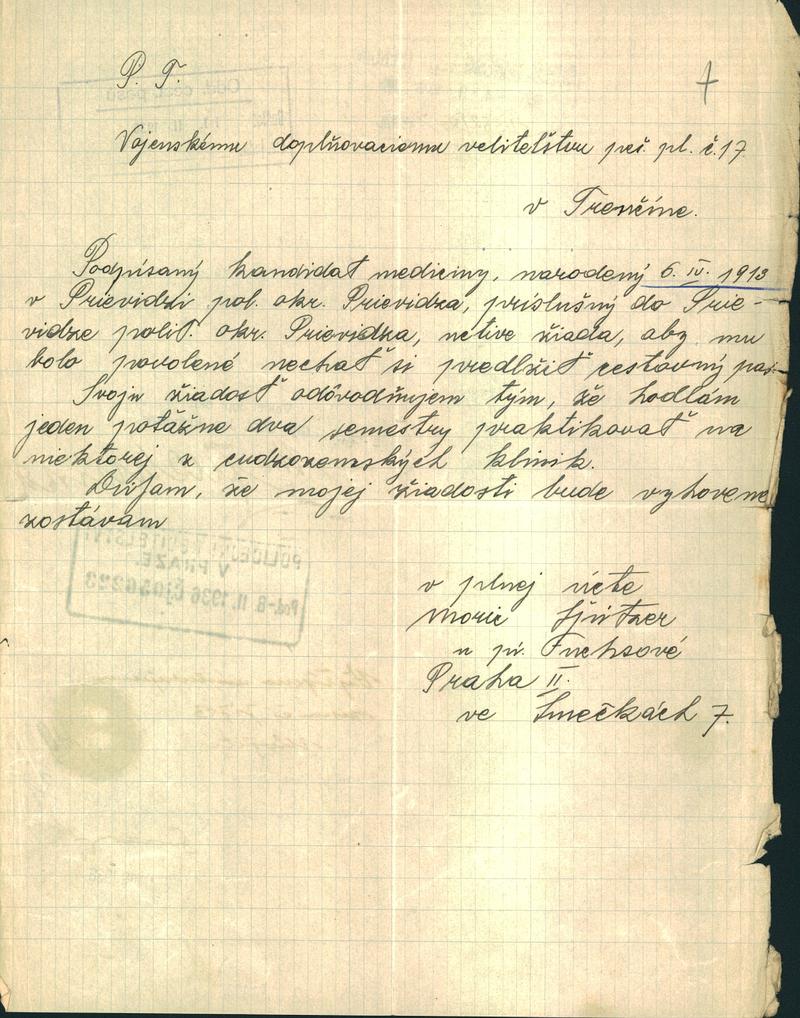 P. T.
7
Vojenskému doplňovaciemu velitelstvu peš. pl. č. 17
v Trenčíne.
Podpísaný kandidat mediciny, narodený 6. IV. 1913
v Prievidzi pol. okr. Prievidza, príslušný do Prie-
vidze polit. okr. Prievidza, uctive žiada, aby mu
bolo povolené nechať si predlžiť cestovný pas.
Svoju žiadosť odôvodňujem tým, že hodlám
jeden potážne dva semestry praktikovať na
niektorej z cudzozemských klinik.
Dúfam, že mojej žiadosti bude vyhovené
zostávam
POLICEJNÍ ŘEDITELSTVÍ
V PRAZE.
Pod.-8. II. 1936 Čj.
v plnej úcte
Moric
u pí. Fuchsové
Praha II.
ve Smečkách 7.